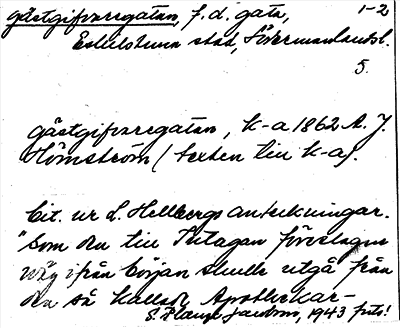 Gästgifvaregatan, f.d. gata, 1-2
Eskilstuna stad, Södermanlandsl.
5.
Gästgifvaregatan, k-a 1862 A. J.
Hömström (texten till k-a).
Cit. ur L. Hellbergs anteckningar.
"Som den till Tullagan föreslagne
väg ifrån början skulle utgå från
den så kallade Apothekar-
S. Plaum Jacobsson, 1943 forts!